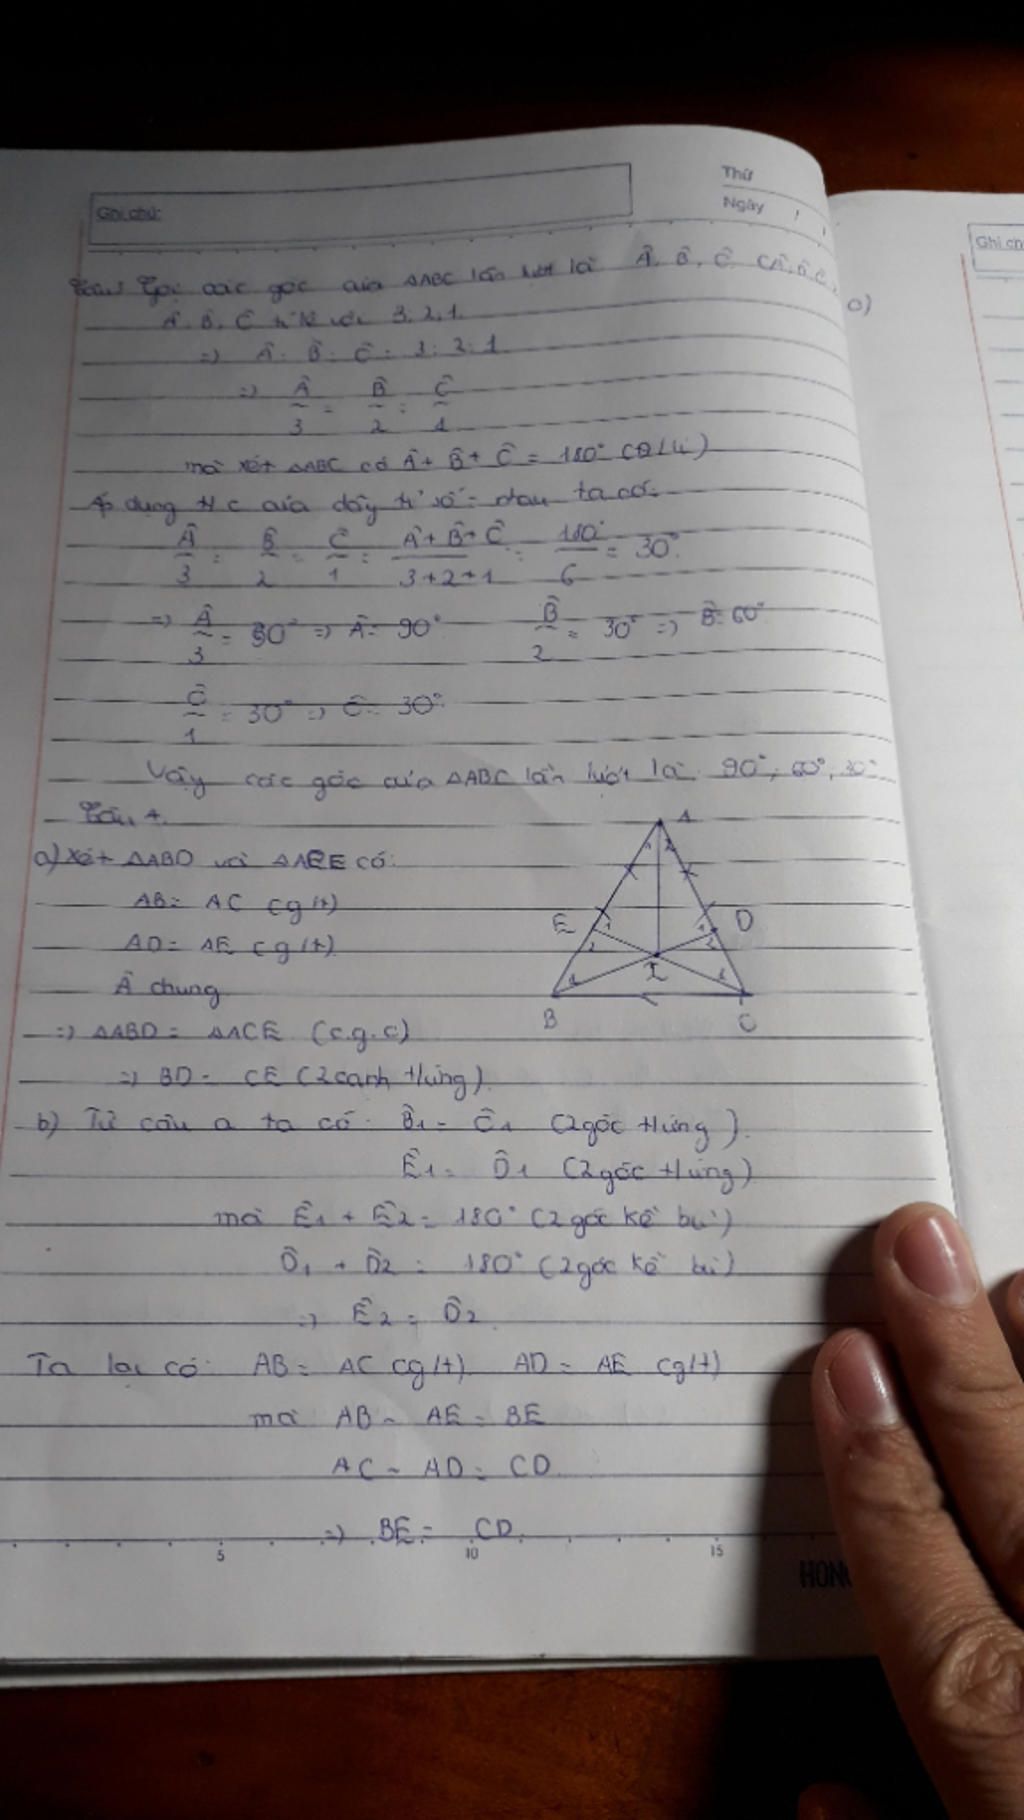 Thứ
Ghi chú:
Ngày / /
Gọi các góc của ΔABC lần lượt là Â, B̂, Ĉ (Â, B̂, Ĉ
Â, B̂, Ĉ tỉ lệ với 3; 2; 1
=> Â : B̂ : Ĉ = 3 : 2 : 1
=> Â/3 = B̂/2 = Ĉ/1
mà xét ΔABC có Â + B̂ + Ĉ = 180° (Đ/lí)
Áp dụng t/c của dãy tỉ số = nhau ta có:
Â/3 = B̂/2 = Ĉ/1 = Â + B̂ + Ĉ/3+2+1 = 180°/6 = 30°
=> Â/3 = 30° => Â = 90° B̂/2 = 30° => B̂ = 60°
Ĉ/1 = 30° => Ĉ = 30°
Vậy các góc của ΔABC lần lượt là 90°, 60°, 30°
Câu 4.
a) Xét ΔABD và ΔACE có:
AB = AC (g/t)
AD = AE (g/t)
Â chung
=> ΔABD = ΔACE (c.g.c)
=> BD = CE (2 cạnh t/ứng)
A
1 2
E 1 2
D 1 2
I
B 1
C 1
b) Từ câu a ta có: B̂1 = Ĉ1 (2 góc t/ứng)
Ê1 = D̂1 (2 góc t/ứng)
mà Ê1 + Ê2 = 180° (2 góc kề bù)
D̂1 + D̂2 = 180° (2 góc kề bù)
=> Ê2 = D̂2
Ta lại có: AB = AC (g/t) AD = AE (g/t)
mà AB - AE = BE
AC - AD = CD
=> BE = CD
5 10 15
HON
Ghi ch
c)